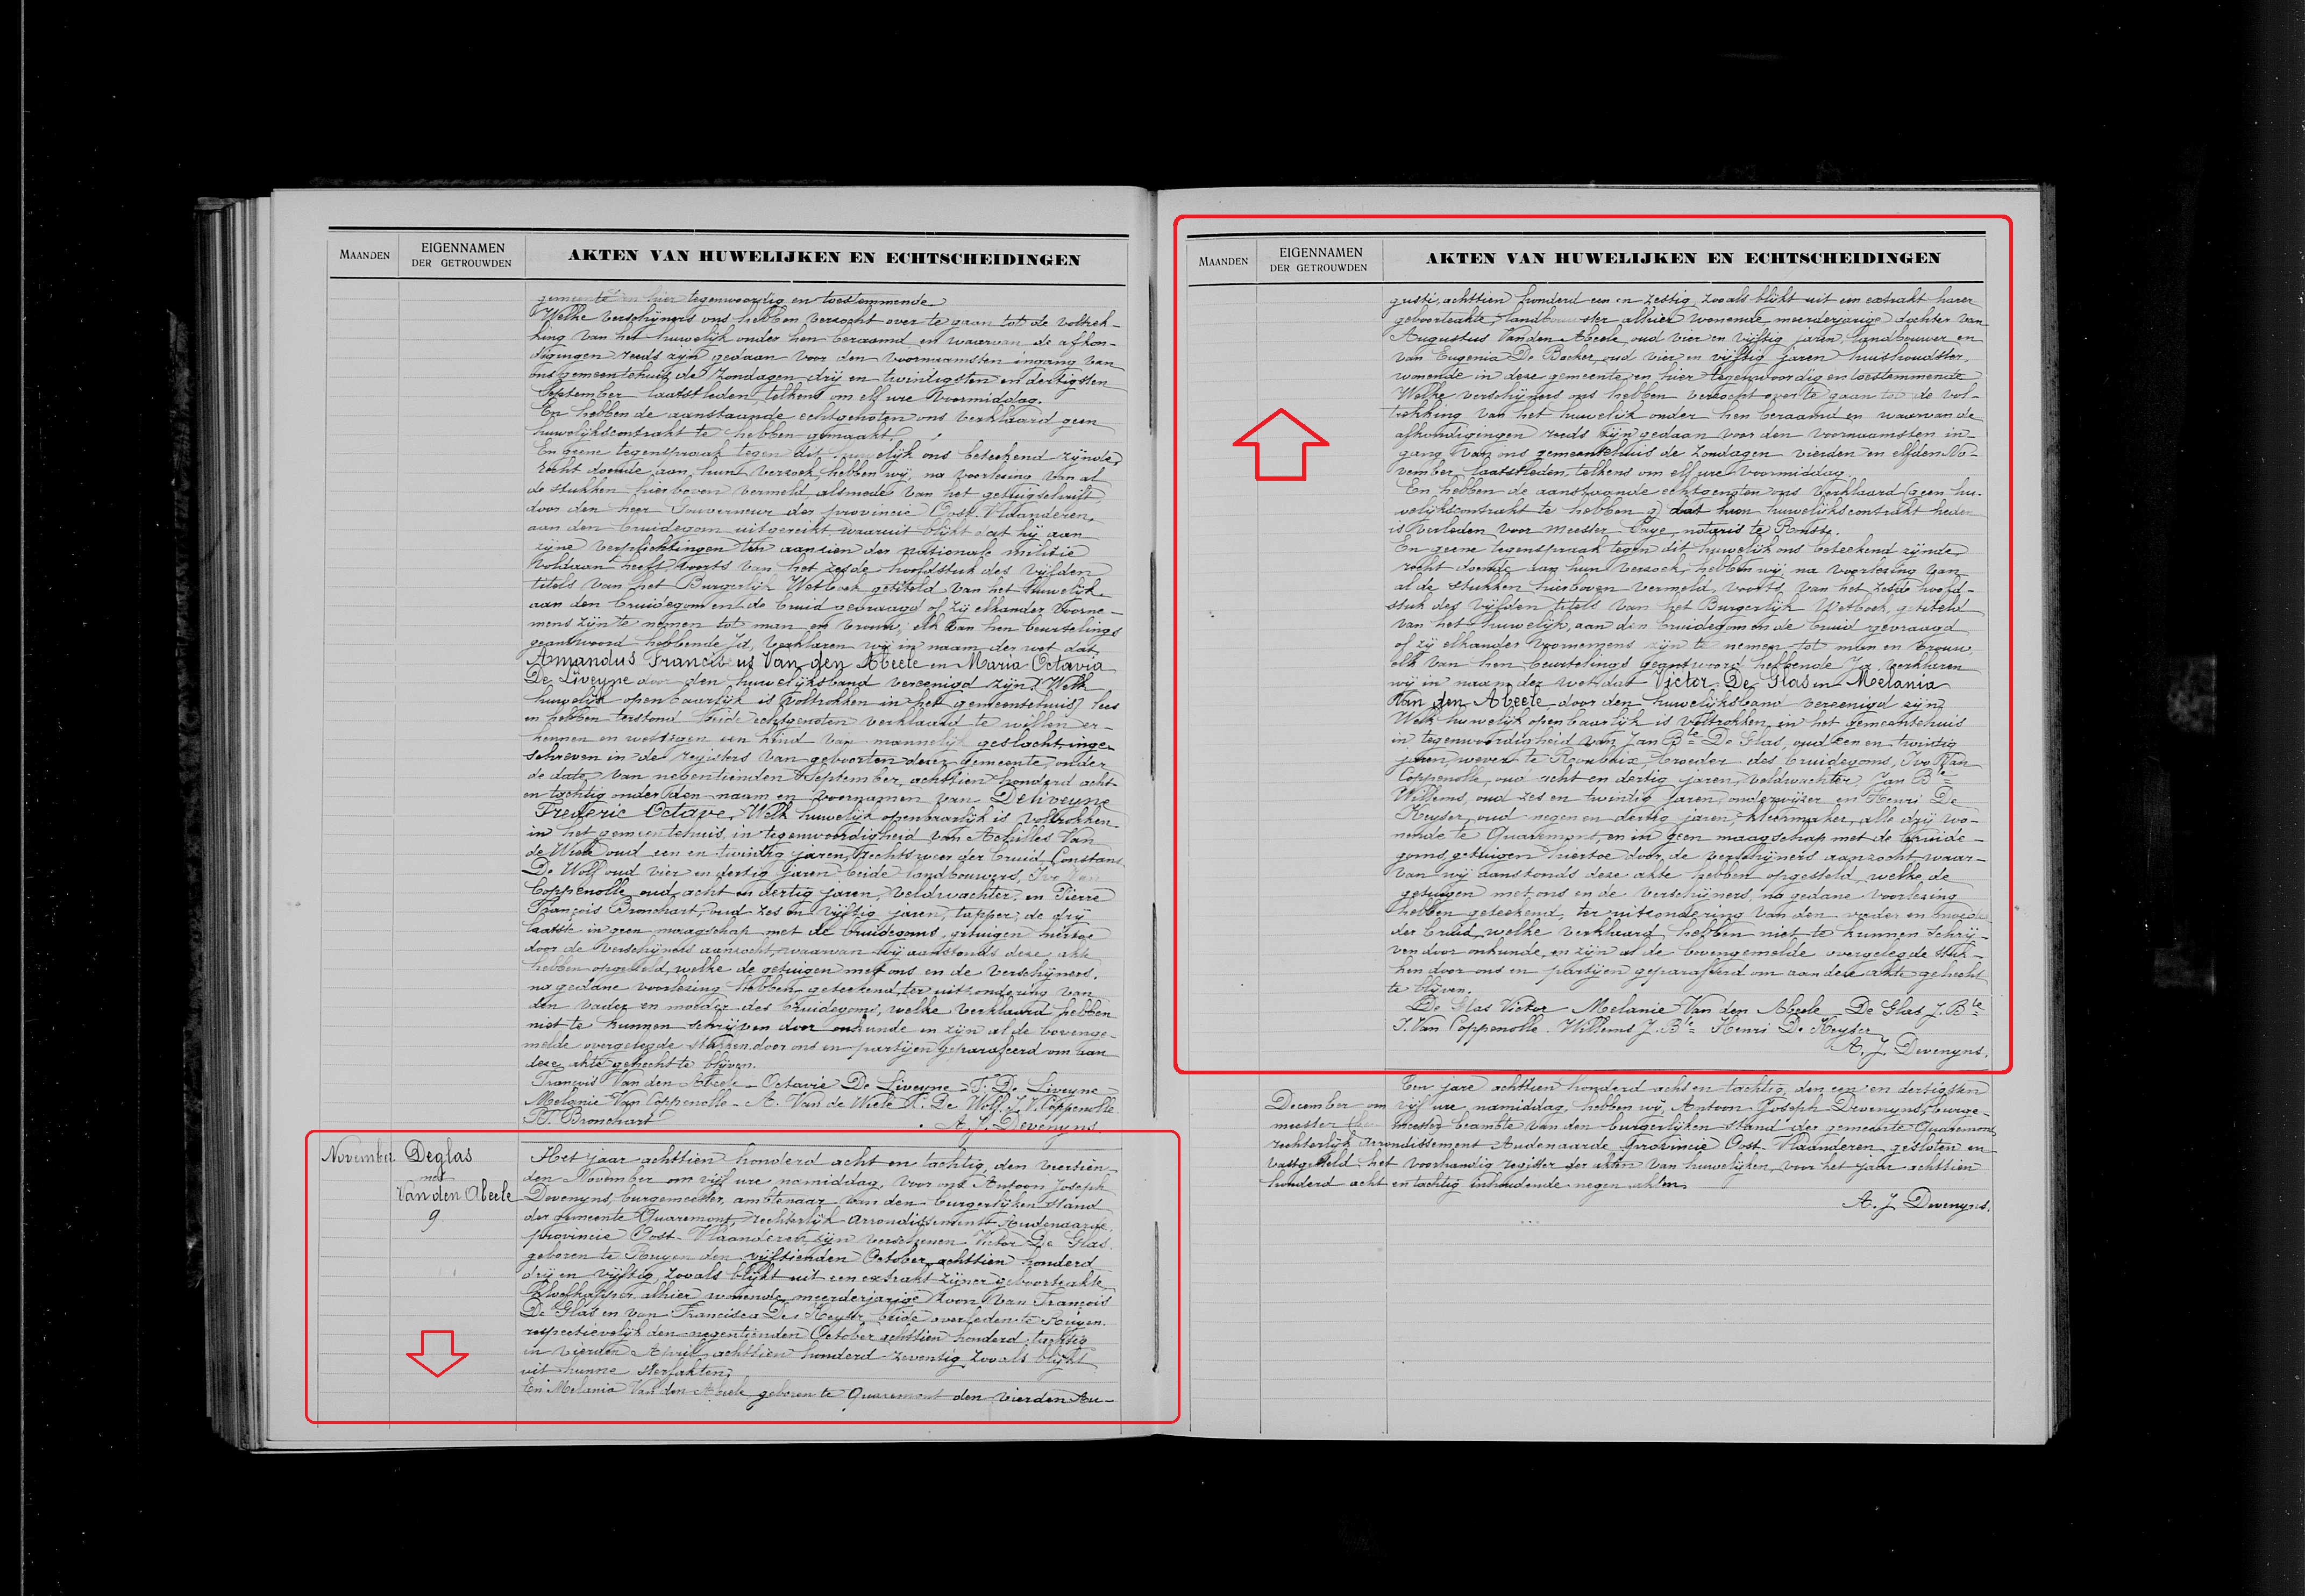 MAANDEN
EIGENNAMEN
DER GETROUWDEN
AKTEN VAN HUWELIJKEN EN ECHTSCHEIDINGEN
gemeente en hier tegenwoordig en toestemmende.
Welke verschijners ons hebben verzocht over te gaan tot de voltrek-
king van het huwelijk onder hen beraamd en waarvan de afkon-
digingen reeds zijn gedaan voor den voornaamsten ingang van
ons gemeentehuis de zondagen drij en twintigsten en dertigsten
September laatstleden, telkens om elf ure voormiddag.
En hebben de aanstaande echtgenoten ons verklaard geen
huwelijkscontrakt te hebben gemaakt.
En geene tegenspraak tegen dit huwelijk ons beteekend zijnde,
recht doende aan hun verzoek, hebben wij, na voorlezing van al
de stukken hierboven vermeld, alsmede van het getuigschrift,
door den heer Gouverneur der provincie Oost-Vlaanderen,
aan den bruidegom uitgereikt waaruit blijkt dat hij aan
zijne verplichtingen ten aanzien der nationale militie
voldaan heeft, voorts van het zesde hoofdstuk des vijfden
titels van het Burgerlijk Wetboek getiteld van het huwelijk
aan den bruidegom en de bruid gevraagd of zij elkander voorne-
mens zijn te nemen tot man en vrouw; elk van hen beurtelings
geantwoord hebbende Ja, verklaren wij in naam der wet dat,
Amandus Franciscus Van den Abeele en Maria Octavia
De Liveyne door den huwelijksband vereenigd zijn. Welk
huwelijk openbaarlijk is voltrokken in het gemeentehuis, lees
en hebben terstond beide echtgenoten verklaard te willen er-
kennen en wettigen een kind van mannelijk geslacht, inge-
schreven in de registers van geboorten dezer gemeente, onder
de date van nebentienden September, achttien honderd acht
en tachtig onder den naam en voornamen van Deliveyne
Frederic Octave. Welk huwelijk openbaarlijk is voltrokken
in het gemeentehuis, in tegenwoordigheid van Achilles Van
de Wiele oud een en twintig jaren, rechtsweer der bruid, Constant
De Wolf oud vier en dertig jaren beide landbouwers, Ivo Van
Coppenolle, oud acht en dertig jaren, veldwachter, en Pierre
François Bronchart, oud zes en vijftig jaren, tapper; de drij
laatste in geen maagschap met de bruidegoms, getuigen hiertoe
door de verschijners aanzocht, waarvan wij aanstonds deze akte
hebben opgesteld, welke de getuigen met ons en de verschijners,
na gedane voorlezing hebben geteekend, ter uitzondering van
den vader en moeder des bruidegoms, welke verklaard hebben
niet te kunnen schrijven door onkunde en zijn al de bovenge-
melde overgelegde stukken door ons en partijen geparafeerd om aan
deze akte gehecht te blijven.
François Van den Abeele - Octavie De Liveyne - F. De Liveyne
Melanie Van Coppenolle - A. Van de Wiele C. De Wolf. J. V. Coppenolle
P. F. Bronchart
A. J. Devenyns.
November.
Deglas
met
Van den Abeele
9
Het jaar achttien honderd acht en tachtig, den veertien-
den November om vijf ure namiddag, voor ons Antoon Joseph
Devenyns, burgemeester, ambtenaar van den burgerlijken stand
der gemeente Quaremont, rechterlijk arrondissement Audenaarde,
provincie Oost-Vlaanderen, zijn verschenen Victor De Glas.
geboren te Ruyen den vijftienden October, achttien honderd
drij en vijftig, zooals blijkt uit een extrakt zijner geboorteakte,
alhier wonende, meerderjarige zoon van François
De Glas en van Francisca De Keyser, beide overleden te Ruyen.
respectievelijk den negentienden October achttien honderd tachtig
en vierden April achttien honderd zeventig zooals blijkt
uit hunne sterfakten;
En Melania Van den Abeele geboren te Quaremont den vierden Au-
MAANDEN
EIGENNAMEN
DER GETROUWDEN
AKTEN VAN HUWELIJKEN EN ECHTSCHEIDINGEN
gusti, achttien honderd een en zestig, zooals blijkt uit een extrakt harer
geboorteakte, landbouwster alhier wonende meerderjarige dochter van
Augustus Vanden Abeele, oud vier en vijftig jaren, landbouwer en
van Eugenia De Backer, oud vier en vijftig jaren huishoudster,
wonende in deze gemeente, en hier tegenwoordig en toestemmende
Welke verschijners ons hebben verzocht over te gaan tot de vol-
trekking van het huwelijk onder hen beraamd en waarvan de
afkondigingen reeds zijn gedaan voor den voornaamsten in-
gang van ons gemeentehuis de zondagen vierden en elfden No-
vember, laatstleden, telkens om elf ure voormiddag.
En hebben de aanstaande echtgenoten ons verklaard (geen hu-
welijkscontrakt te hebben g) dat hun huwelijkscontrakt heden
is verleden voor meester Caye, notaris te Ronsse.
En geene tegenspraak tegen dit huwelijk ons beteekend zijnde
recht doende aan hun verzoek, hebben wij na voorlezing van
al de stukken hierboven vermeld, voorts van het zesde hoofd-
stuk des vijfden titels van het Burgerlijk Wetboek, getiteld
van het huwelijk, aan den bruidegom en de bruid gevraagd
of zij elkander voornemens zijn te nemen tot man en vrouw,
elk van hen beurtelings geantwoord hebbende Ja, verklaren
wij in naam der wet, dat Victor De Glas en Melania
Van den Abeele door den huwelijksband vereenigd zijn
Welk huwelijk openbaarlijk is voltrokken, in het gemeentehuis
in tegenwoordigheid van Jan Bte De Glas, oud een en twintig
jaren, wever te Roubaix, broeder des bruidegoms, Ivo Van
Coppenolle, oud acht en dertig jaren, veldwachter, Jan Bte
Willems, oud zes en twintig jaren, onderwijzer en Henri De
Keyser, oud negen en dertig jaren, kleermaker, alle drij wo-
nende te Quaremont, en in geen maagschap met de bruide-
goms, getuigen hiertoe door de verschijners aanzocht waar-
van wij aanstonds deze akte hebben opgesteld, welke de
getuigen met ons en de verschijners, na gedane voorlezing
hebben geteekend, ter uitzondering van den vader en moeder
der bruid, welke verklaard hebben niet te kunnen schrij-
ven door onkunde, en zijn al de bovengemelde overgelegde stuk-
ken door ons en partijen geparafeerd om aan deze akte gehecht
te blijven.
De Glas Victor Melanie Van den Abeele De Glas J. Bte
J. Van Coppenolle. Willems J. Bte Henri De Keyser
A. J. Devenyns.
En jare achttien honderd acht en tachtig, den een en dertigsten
December om vijf ure namiddag, hebben wij, Antoon Joseph Devenyns, burge-
meester meester beambte van den burgerlijken stand der gemeente Quaremont
rechterlijk arrondissement Audenaarde, provincie Oost-Vlaanderen, gesloten en
vastgesteld het voorhandig register der akten van huwelijken, voor het jaar achttien
honderd acht en tachtig inhoudende negen akten.
A. J. Devenyns.